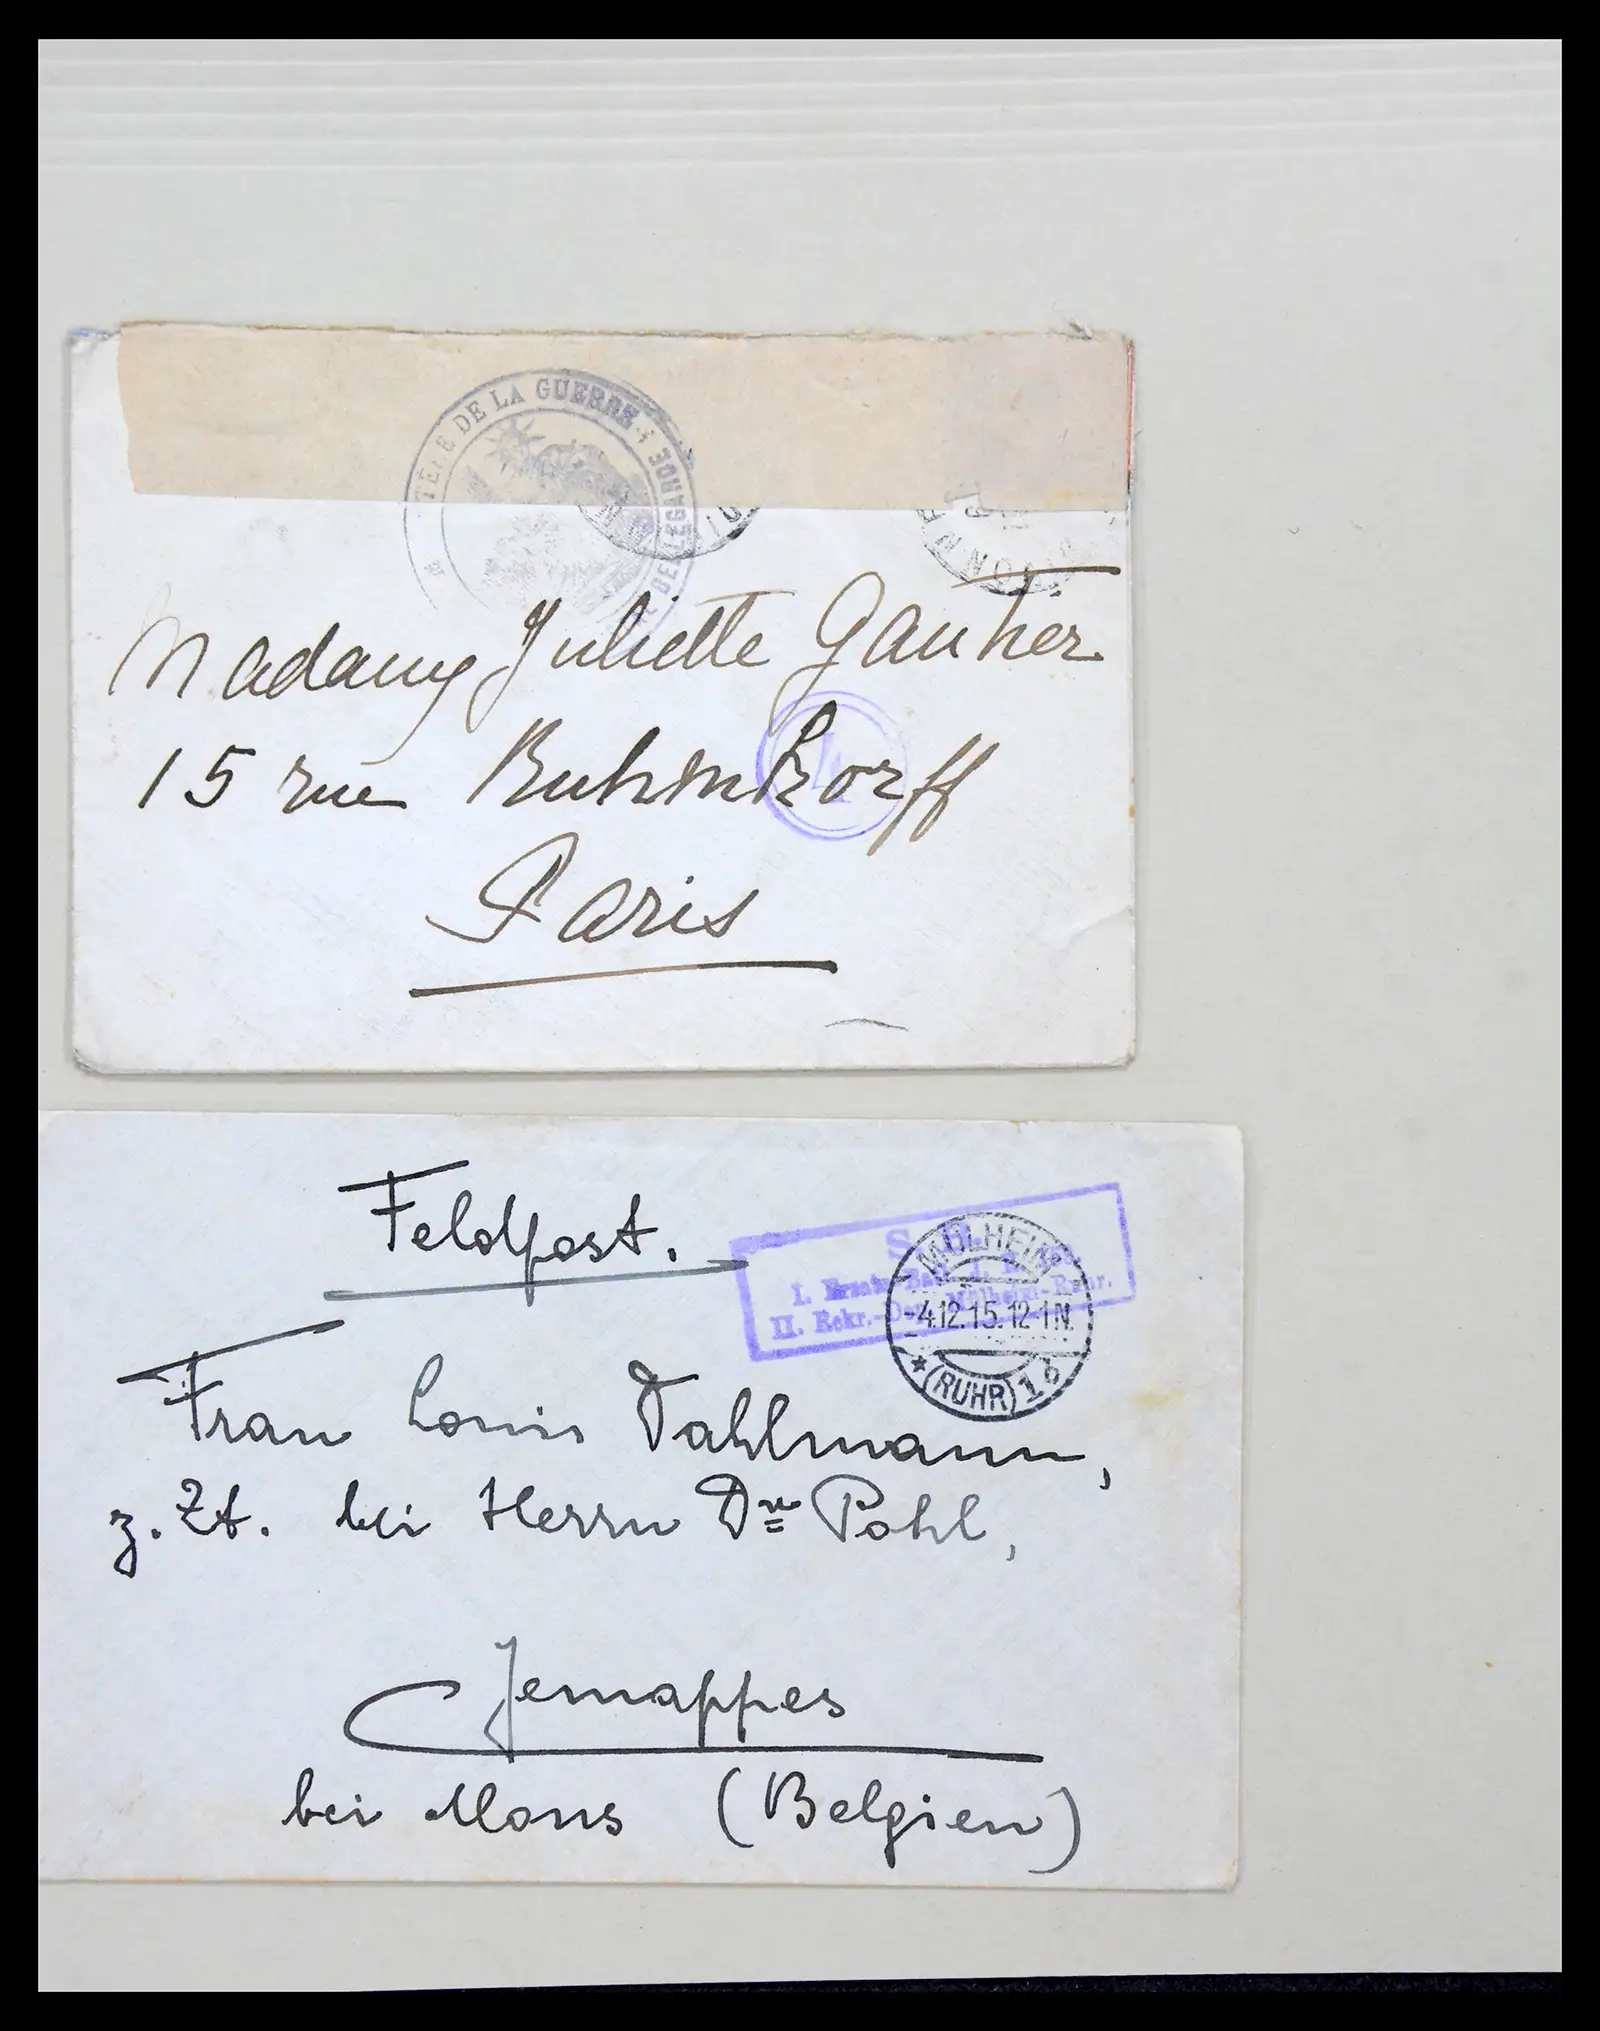 DE LA GUERRE
Madame Juliette Gautier
4
15 rue Ruhmkorff
Paris
Feldpost.
S. B.
I. Ersatz-Batl. J. R.
II. Rekr.-Dep. Mülheim-Ruhr.
MÜLHEIM
-4.12.15.12-1N.
* (RUHR) 1
Frau Louis Dahlmann,
z. Zt. bei Herrn Dr Pohl,
Jemappes
bei Mons (Belgien)